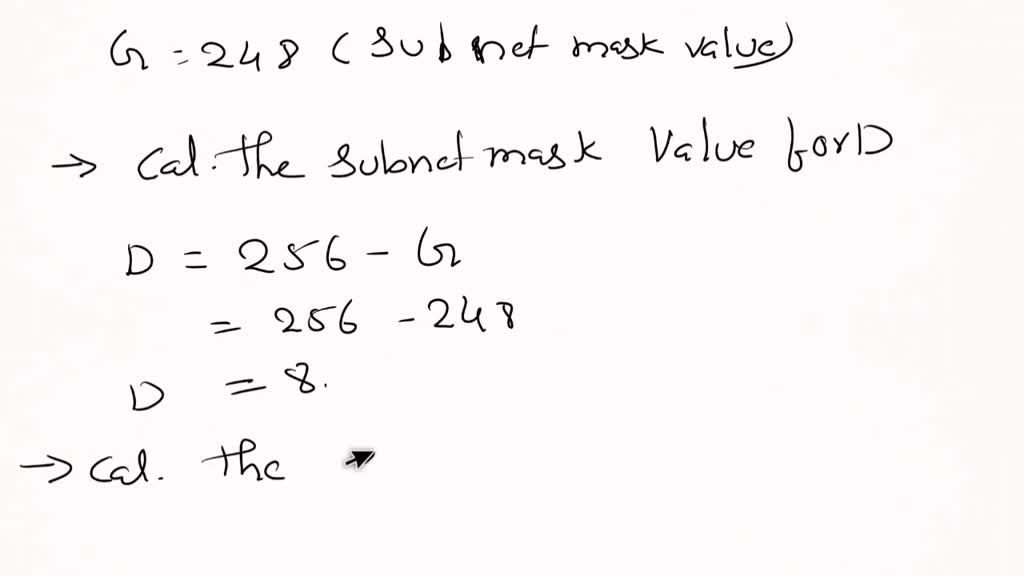 G = 248 (Subnet mask value)
→ Cal. the Subnet mask Value for D
D = 256 - G
= 256 - 248
D = 8.
→ Cal. the